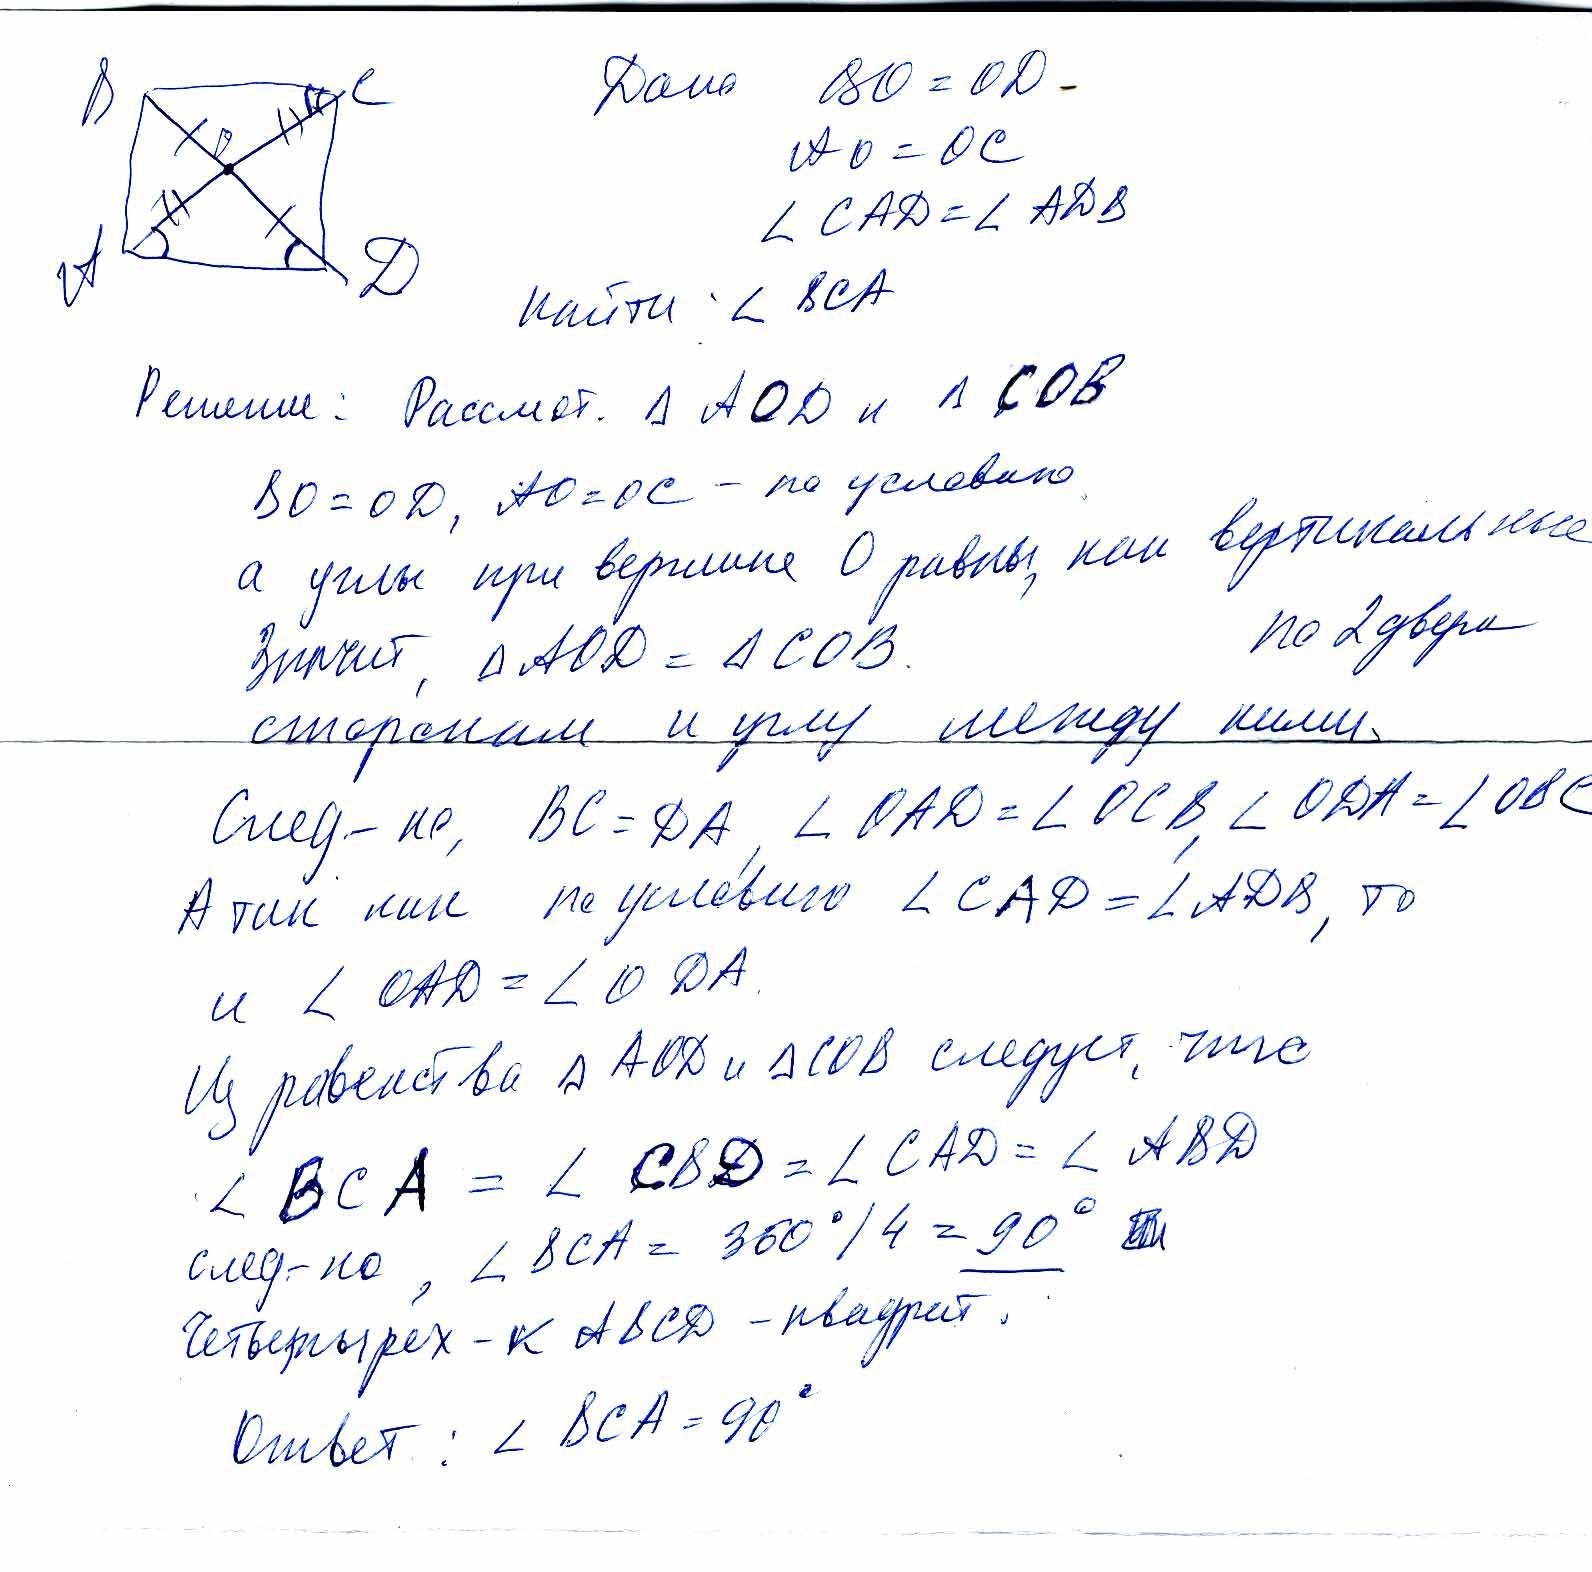 B C Дано BO = OD -
O
AO = OC
A D
∠ CAD = ∠ ADB
Найти: ∠ BCA
Решение: Рассмот. Δ AOD и Δ COB
BO = OD, AO = OC - по условию
а углы при вершине O равны, как вертикальные
Значит, Δ AOD = Δ COB. по 2 двум
сторонам и углу между ними.
След-но, BC = DA, ∠ OAD = ∠ OCB, ∠ ODA = ∠ OBC
А так как по условию ∠ CAD = ∠ ADB, то
и ∠ OAD = ∠ ODA.
Из равенства Δ AOD и Δ COB следует, что
∠ BCA = ∠ CBD = ∠ CAD = ∠ ABD
след-но, ∠ BCA = 360° / 4 = 90°
Четырех-к ABCD - квадрат.
Ответ: ∠ BCA = 90°